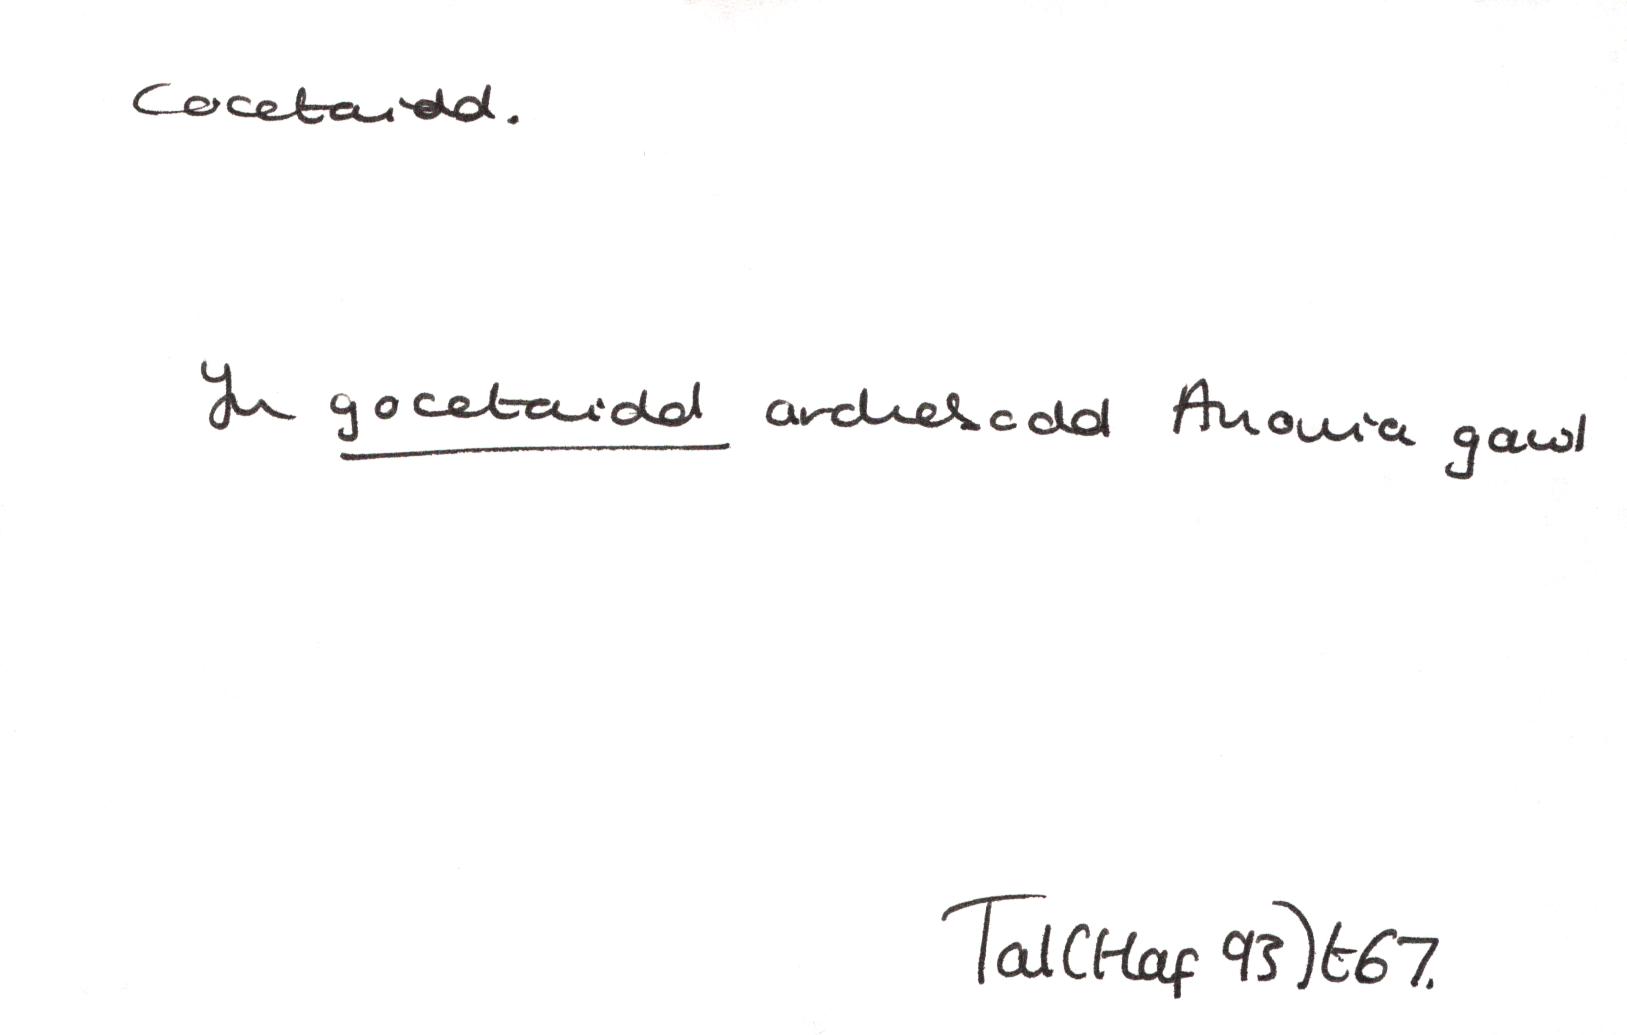 Cocetaidd.
Yn gocetaidd archescodd Anouia gawl
Tal (Haf 93) t67.